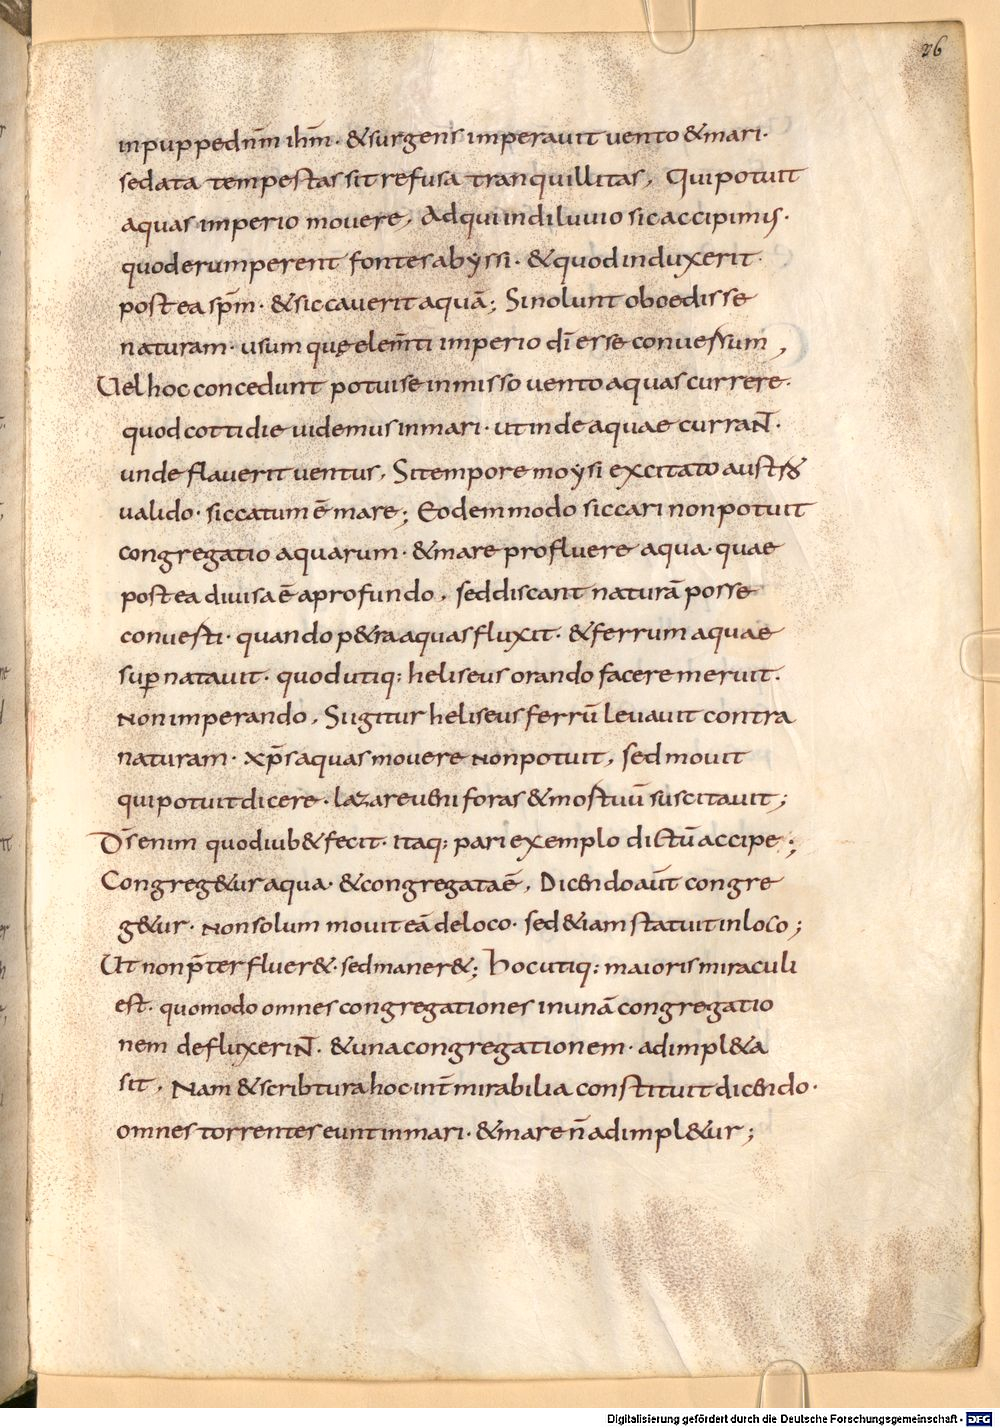 26
inpuppe dnm̄ ihm̄· & surgens imperauit uento & mari·
sedata tempestas sit refusa tranquillitas, Qui potuit
aquas imperio mouere, Ad qui in diluuio sic accipimis·
quod erumperent fontes abyssi· & quod induxerit·
postea spm̄· & siccauerit aquā; Si nolunt oboedisse
naturam· usumquę elem̄ti imperio dī esse conuersum,
Uel hoc concedunt potuise inmisso uento aquas currere·
quod cottidie uidemus in mari· ut inde aquae curraN̄·
unde flauerit uentus, Si tempore moysi excitato austro
ualido· siccatum ē mare; Eodem modo siccari non potuit
congregatio aquarum· & mare profluere aqua· quae
postea diuisa ē a profundo, sed discant naturā posse
conuerti· quando p&ra aquas fluxit· & ferrum aquae
sup̄natauit· quod utiq: heliseus orando facere meruit·
Non imperando, Si igitur heliseus ferrū leuauit contra
naturam· xp̄s aquas mouere Non potuit, sed mouit
qui potuit dicere· lazare ueni foras & mortuū suscitauit;
Ds̄ enim quod iub& fecit· itaq: pari exemplo dictū accipe;
Congreg&ur aqua· & congregata ē, Dicendo aūt congre
g&ur· Non solum mouit eā de loco· sed &iam statuit in loco;
Ut non p̄terfluer&· sed maner&; Hoc utiq: maioris miraculi
est· quomodo omnes congregationes in unā congregatio
nem defluxeriN̄· & una congregationem· adimpl&a
sit, Nam & scribtura hoc int̄ mirabilia constituit dicendo·
omnes torrentes eunt in mari· & mare n̄ adimpl&ur;
Digitalisierung gefördert durch die Deutsche Forschungsgemeinschaft - DFG